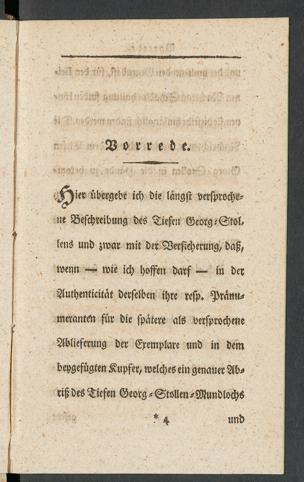 Vorrede.
Hier übergebe ich die längst versproche-
ne Beschreibung des Tiefen Georg-Stol-
lens und zwar mit der Versicherung, daß,
wenn — wie ich hoffen darf — in der
Authenticität derselben ihre resp. Pränu-
meranten für die spätere als versprochene
Ablieferung der Exemplare und in dem
beygefügten Kupfer, welches ein genauer Ab-
riß des Tiefen Georg-Stollen-Mundlochs
* 4 und